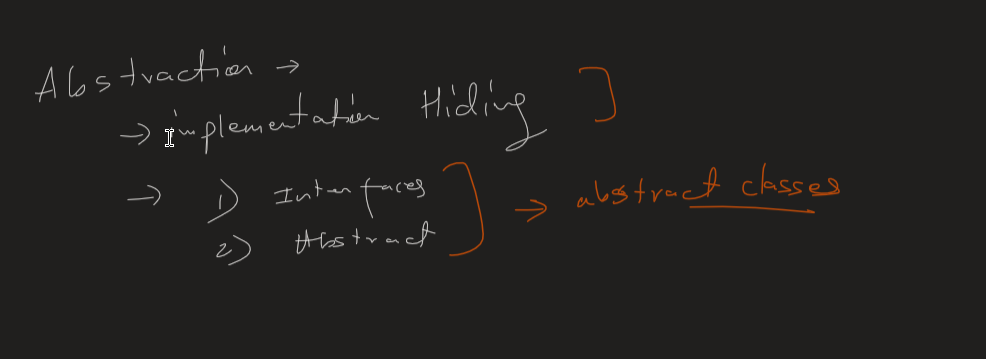 Abstraction →
→ implementation Hiding ]
→ 1) Interfaces
2) Abstract ] → abstract classes